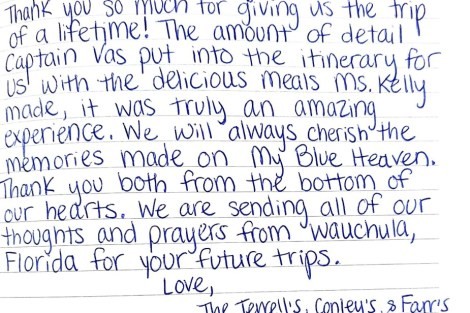 Thank you so much for giving us the trip
of a lifetime! The amount of detail
Captain Vas put into the itinerary for
us with the delicious meals Ms. Kelly
made, it was truly an amazing
experience. We will always cherish the
memories made on My Blue Heaven.
Thank you both from the bottom of
our hearts. We are sending all of our
thoughts and prayers from Wauchula,
Florida for your future trips.
Love,
The Terrell's, Conley's, & Farr's